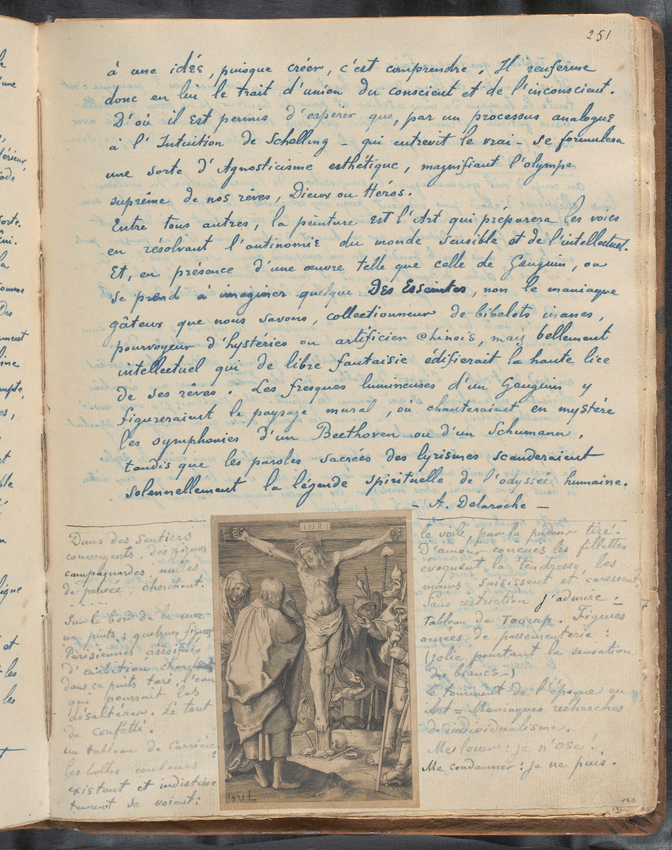 251
à une idée, puisque créer, c'est comprendre. Il renferme
donc en lui le trait d'union du conscient et de l'inconscient.
D'où il est permis d'espérer que, par un processus analogue
à l'Intuition de Schelling – qui entrevit le vrai – se formulera
une sorte d'Agnosticisme esthétique, magnifiant l'olympe
suprême de nos rêves, Dieux ou Héros.
Entre tous autres, la peinture est l'Art qui préparera les voies
en résolvant l'antinomie du monde sensible et de l'intellectuel.
Et, en présence d'une œuvre telle que celle de Gauguin, on
se prend à imaginer quelque Des Esseintes, non le maniaque
gâteux que nous savons, collectionneur de bibelots inanes,
pourvoyeur d'hystéries ou artificier chinois, mais bellement
intellectuel qui de libre fantaisie édifierait la haute lice
de ses rêves. Les fresques lumineuses d'un Gauguin y
figureraient le paysage mural, où chanteraient en mystère
les symphonies d'un Beethoven ou d'un Schumann,
tandis que les paroles sacrées des lyrismes scanderaient
solennellement la légende spirituelle de l'odyssée humaine.
– A. Delaroche –
Dans des sentiers
convergents des
campagnardes
de pensée, cherchent
Sur le bord de la
un puits : quelques
Parisiennes assoiffées
d'
dans ce puits tari, l'eau
qui pourrait les
désaltérer. Le tout
de confetti.
un tableau de Carrière
Les belles couleurs
existent et indistinc
tement se voient :
INRI
le voile, par la pudeur tiré.
d'amour les fillettes
évoquent la tendresse, les
mains saisissent et caressent.
Sans restriction j'admire –
Tableau de . Figures
ornées de passementerie :
Folie pourtant la sensation
de blancs –
Le tourment de l'époque en
Art = Maniaques recherches
d'individualisme.
Me louer : je n'ose !
Me condamner : je ne puis.